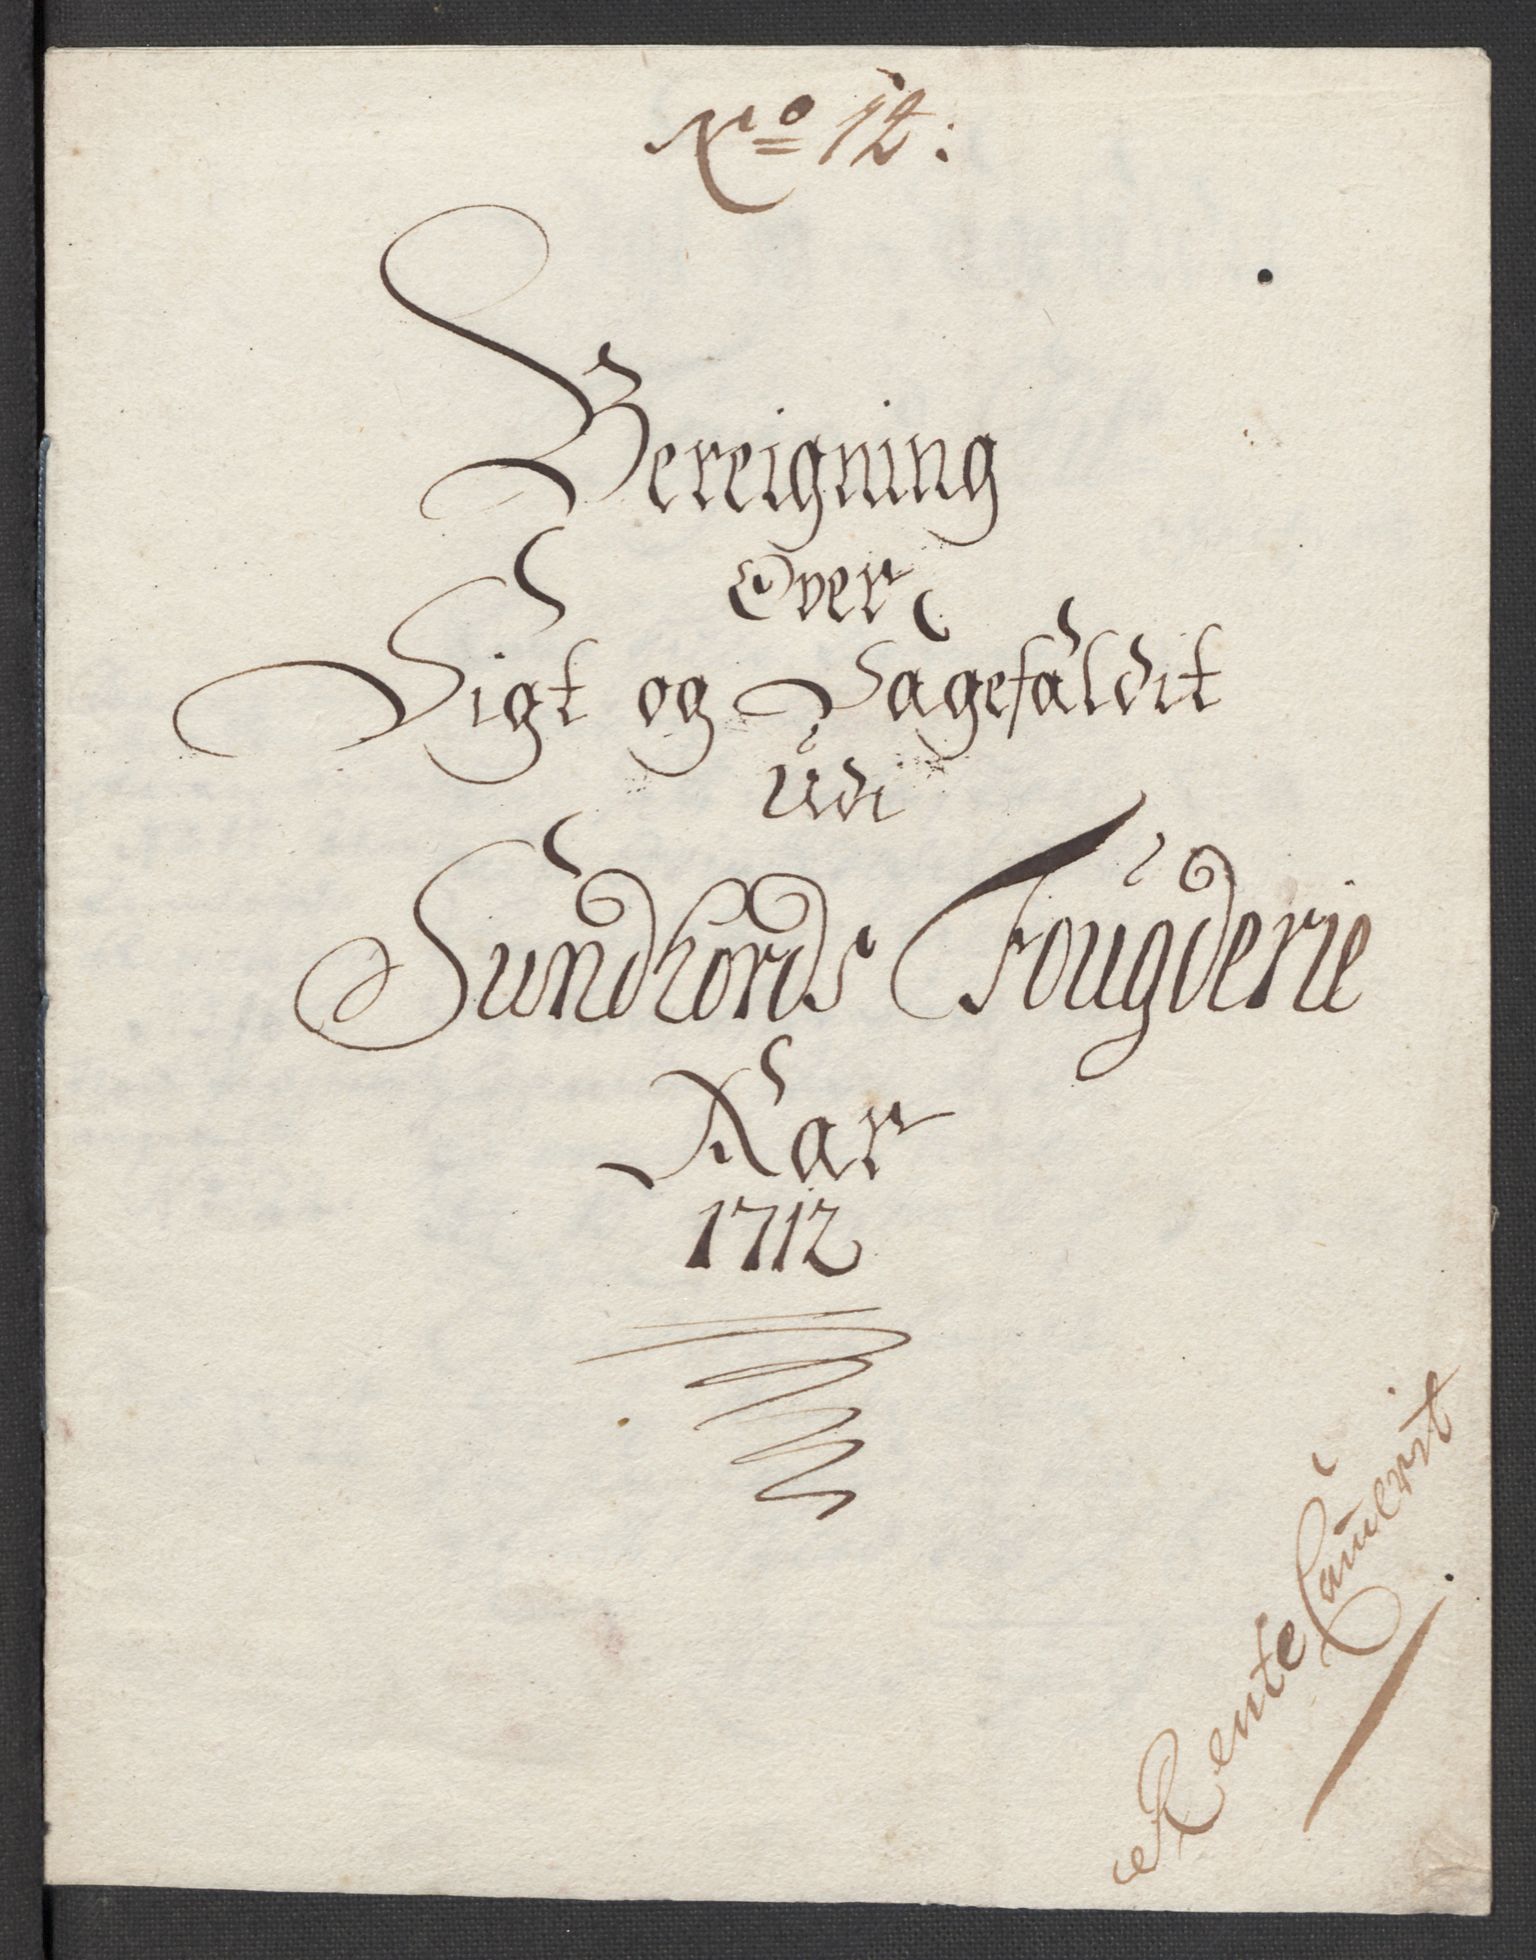 No 12:
Bereigning
Over
Sigt og Sagefaldit
Udi
Sundhords Fougderie
Aar
1712
Rente Camerit